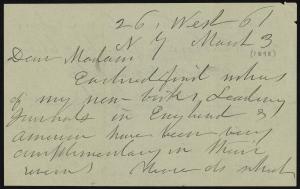 26, West 61
N Y March 3
(1898)
Dear Madam
Enclosed find notices
of my new book, Leading
journals in England &
America have been very
complimentary in their
reviews